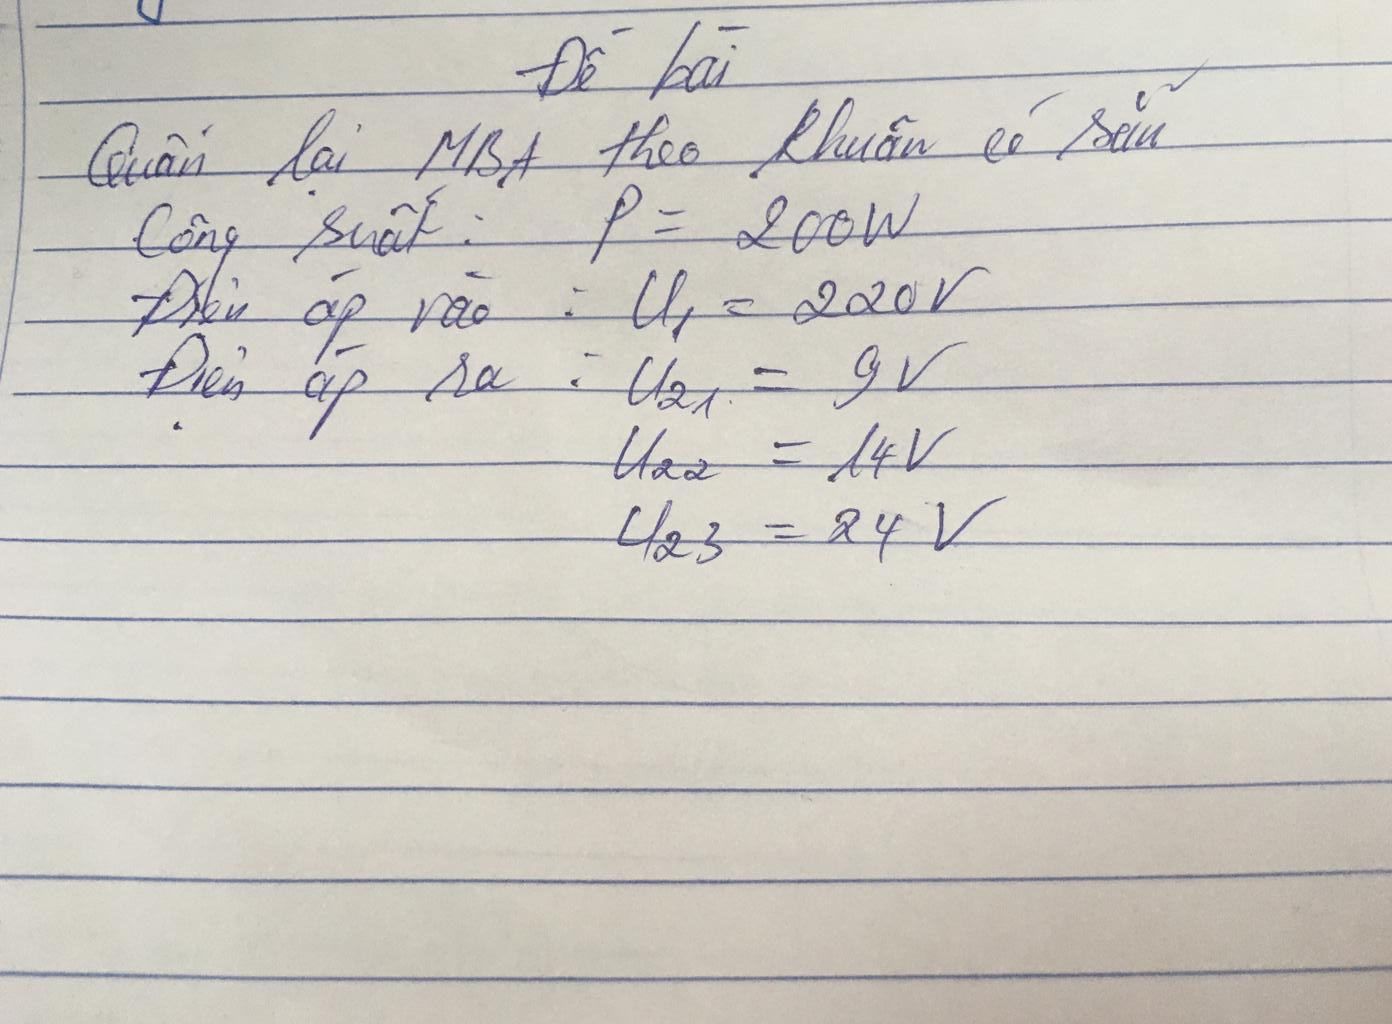 Đề bài
Quấn lại MBA theo khuân có sẵn
Công suất : P = 200W
Điện áp vào : U₁ = 220V
Điện áp ra : U₂₁ = 9V
U₂₂ = 14V
U₂₃ = 24V